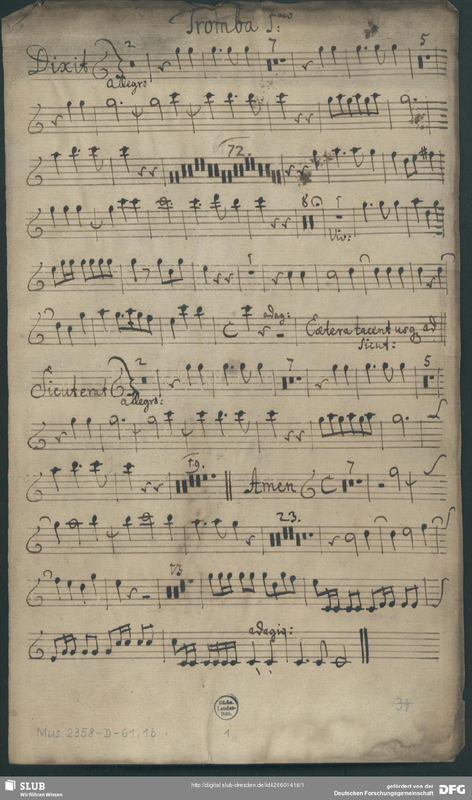 Tromba I:mo
Dixit 2 7 5
allegro
72.
8 1
Viv:
1
adag: Cætera tacent usq ad
Sicut:
Sicuterat 2 7 5
allegro:
19. Amen 7
23.
73
adagio:
Mus. 2358-D-61,16 1 34
Sächs. Landes-Bibl.
SLUB
Wir führen Wissen.
http://digital.slub-dresden.de/id426601416/1
gefördert von der
Deutschen Forschungsgemeinschaft DFG